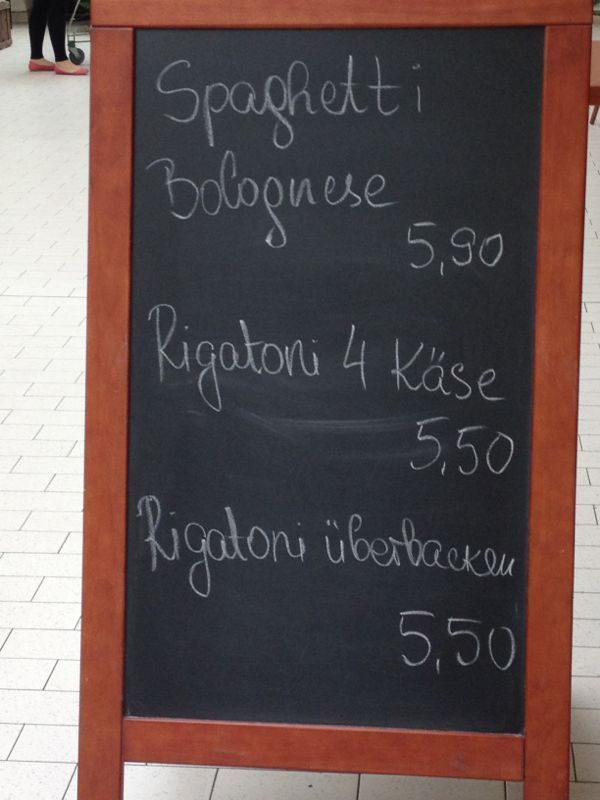 Spaghetti
Bolognese
5,90
Rigatoni 4 Käse
5,50
Rigatoni überbacken
5,50